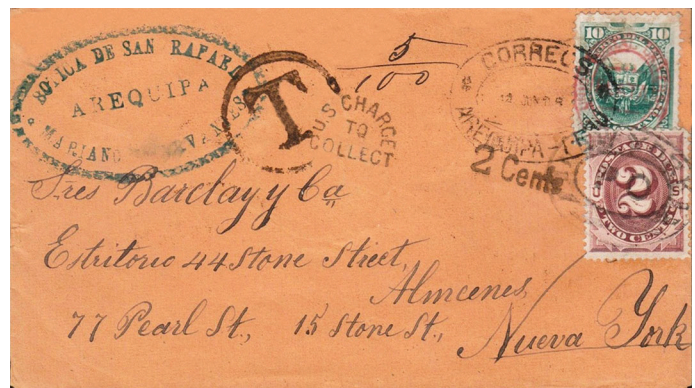 BOTICA DE SAN RAFAEL
AREQUIPA
MARIANO
T
U.S. CHARGE
TO
COLLECT
5/100
CORREOS
AREQUIPA-PERU
2 Cents
10 10
2
TWO CENTS
Sres Barclay y Ca
Estritorio 44 Stone Street,
Almcenes,
77 Pearl St., 15 Stone St.,
Nueva York